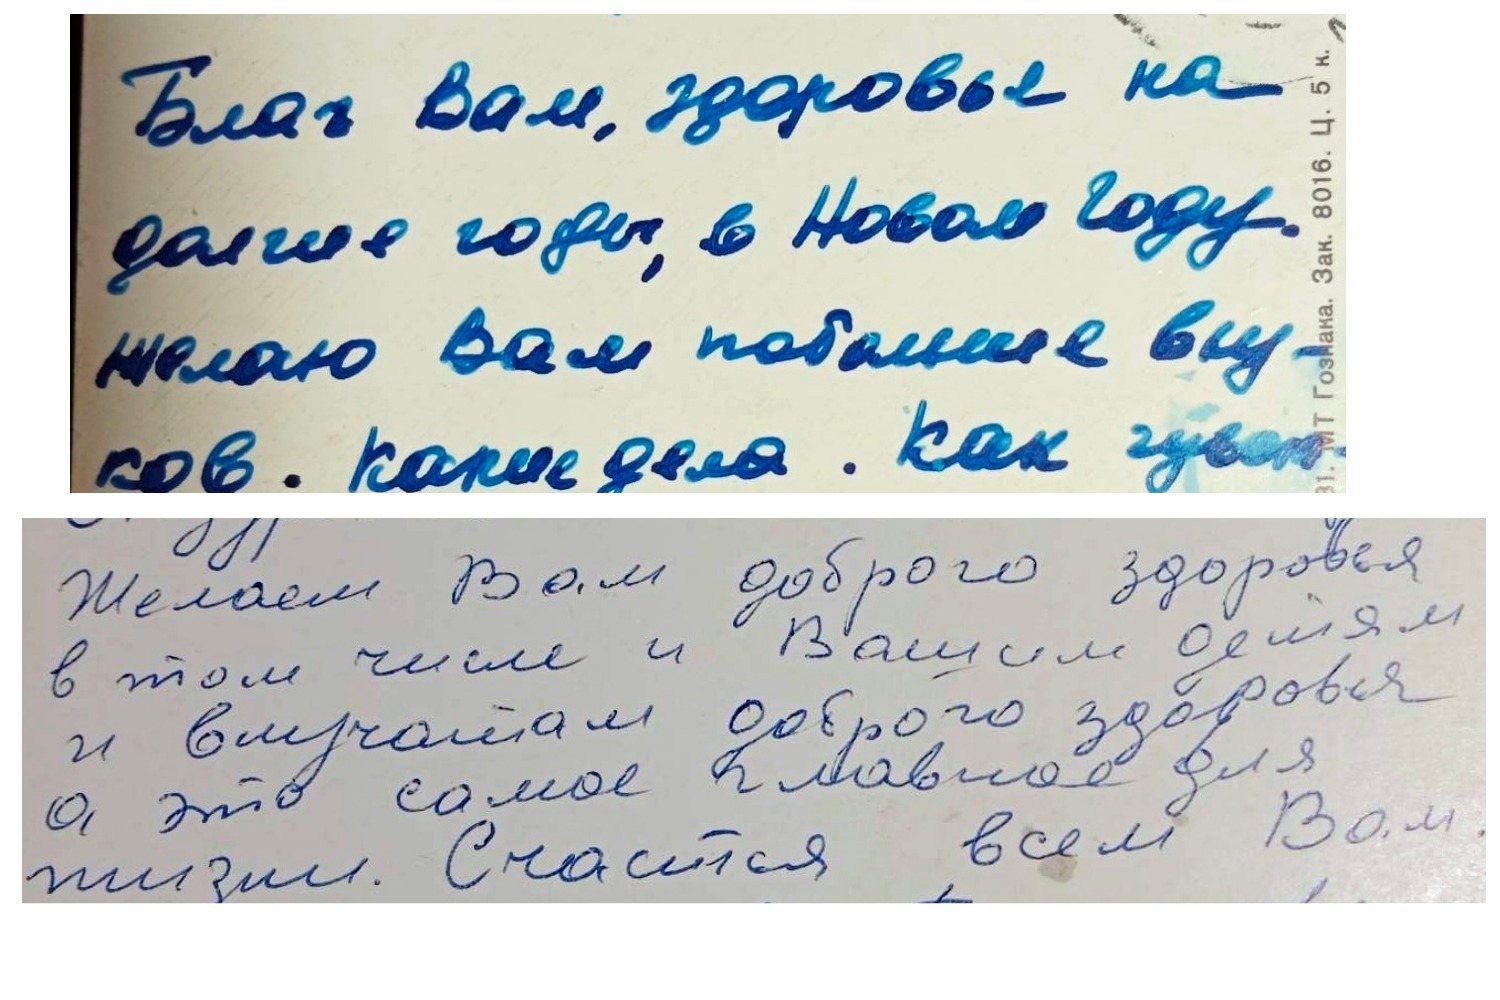 Благ Вам, здоровье на
долгие годы, в Новом Году.
желаю Вам побольше вну-
ков. Какие дела. Как чувст-
МТ Гознака. Зак. 8016. Ц. 5 к.
Желаем Вам доброго здоровья
в том числе и Вашим детям
и внучатам доброго здоровья
а это самое главное для
жизни. Счастья всем Вам.